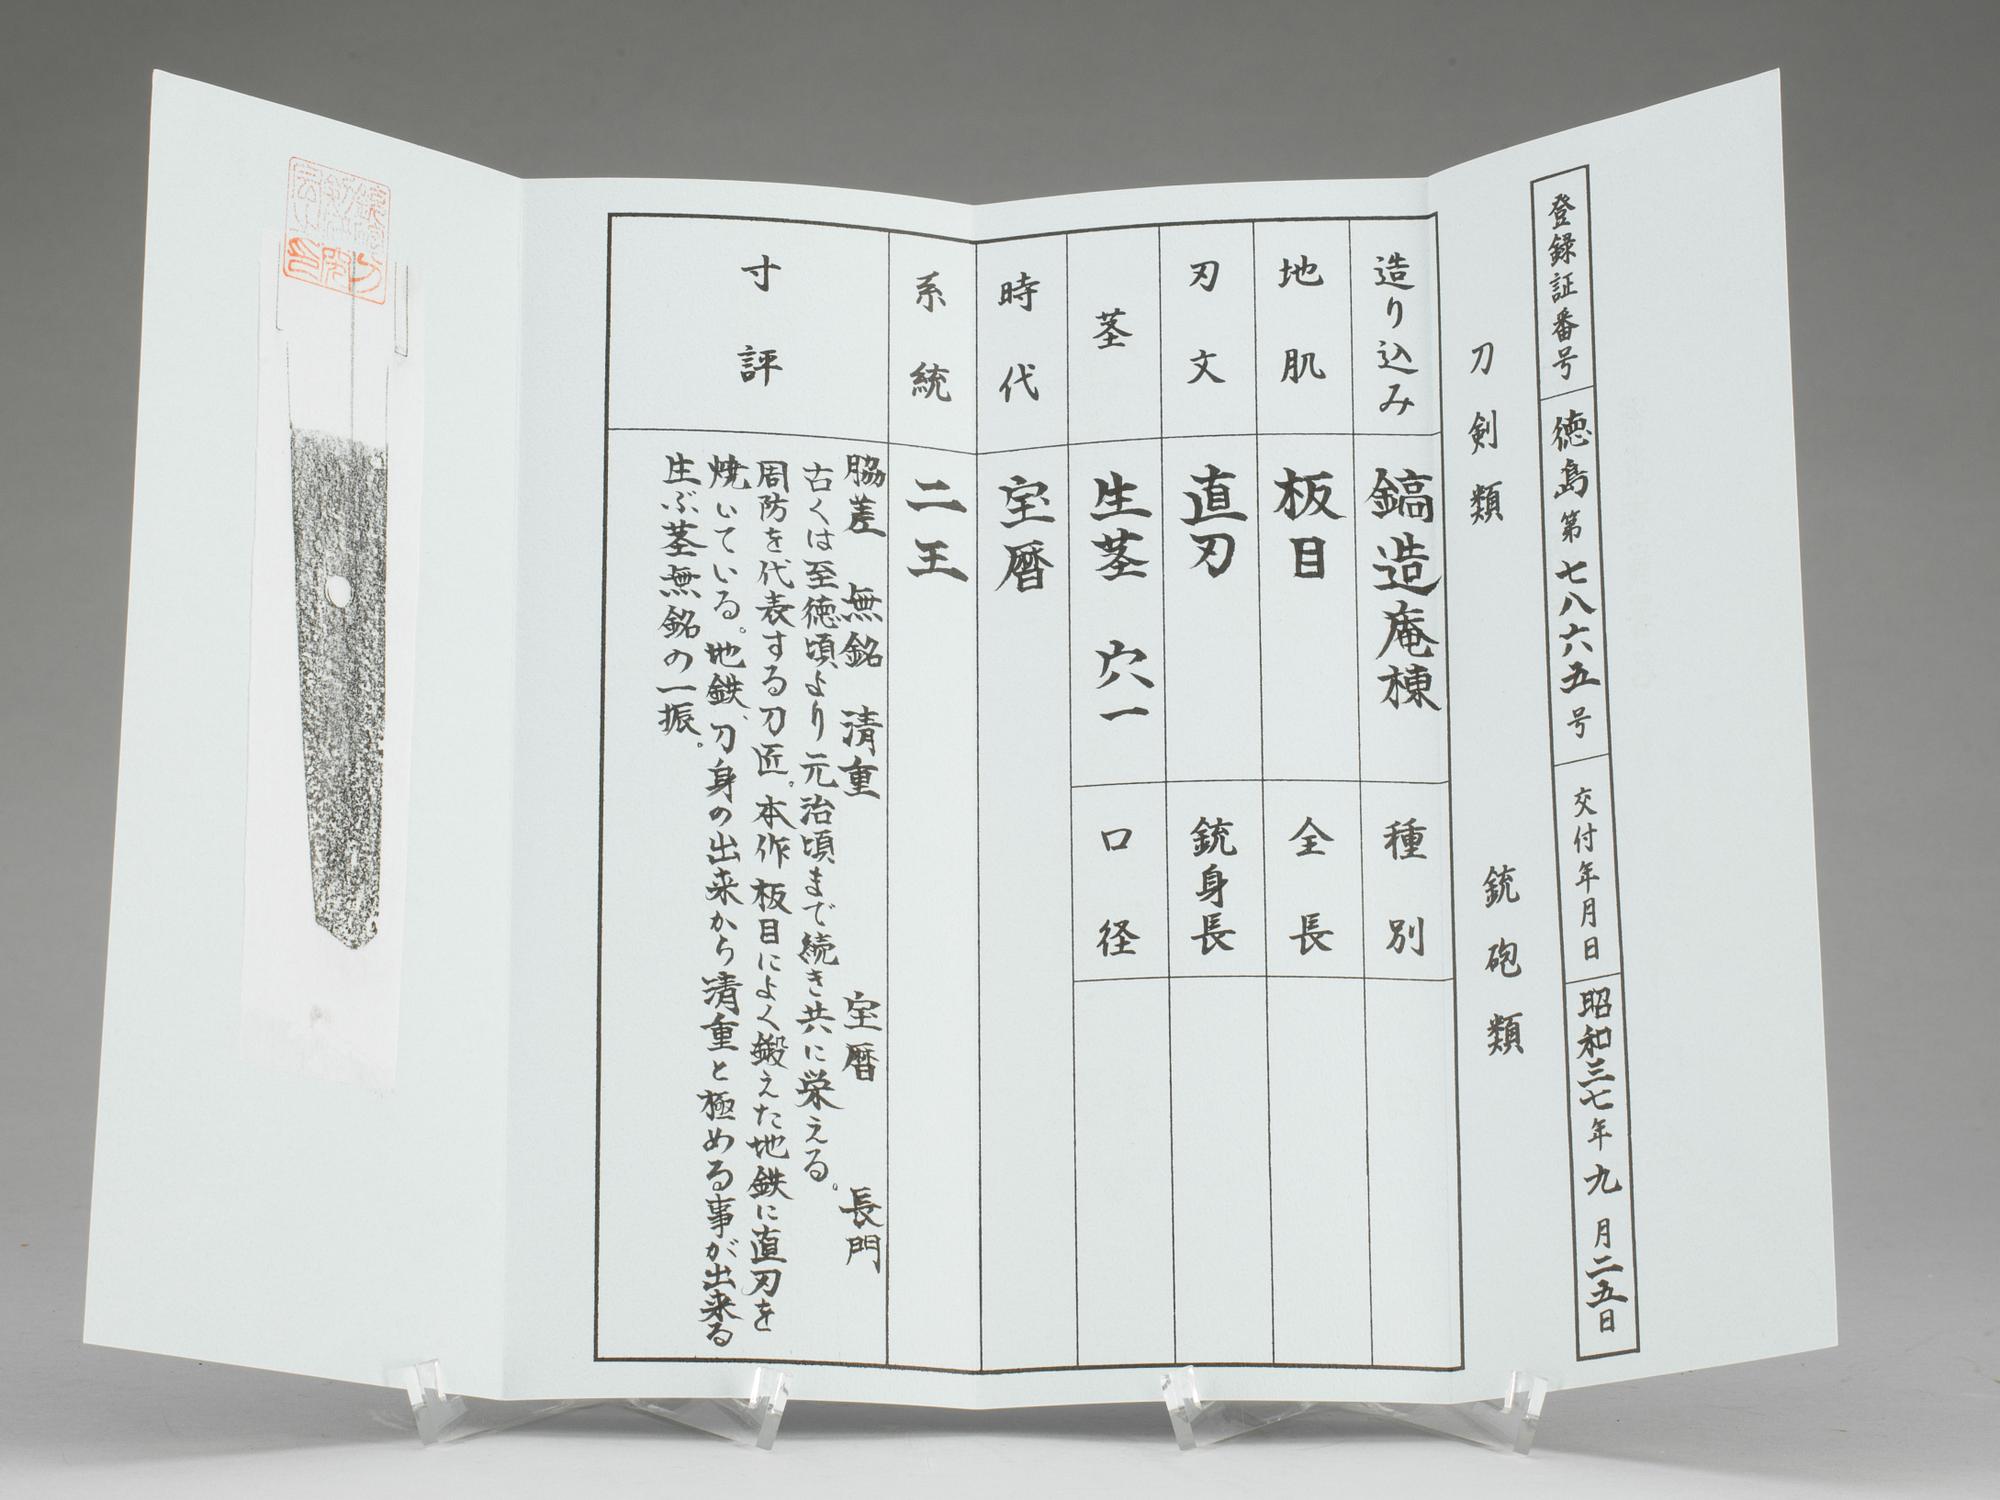 登録証番号 徳島 第 七八六五 号 交付年月日 昭和三七年 九 月二五日
刀剣類 銃砲類
造り込み 鎬造庵棟 種別
地肌 板目 全長
刃文 直刃 銃身長
茎 生茎 穴一 口径
時代 宝暦
系統 二王
寸評
脇差 無銘 清重 宝暦 長門
古くは至徳頃より元治頃まで続き共に栄える。
周防を代表する刀匠。本作板目によく鍛えた地鉄に直刃を
焼いている。地鉄、刀身の出来から清重と極める事が出来る
生ぶ茎無銘の一振。